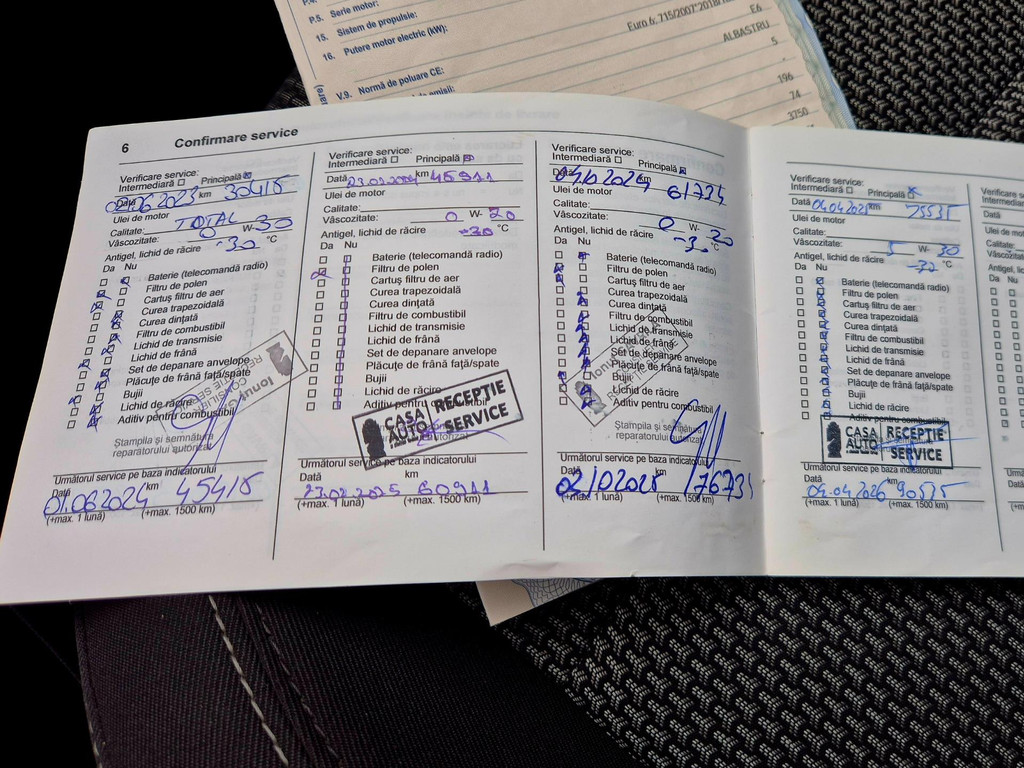 P.5. Serie motor:
15. Sistem de propulsie:
16. Putere motor electric (kW):
V.9. Normă de poluare CE:
Euro 6; 715/2007*2018/
E6
ALBASTRU
5
196
74
3750
6 Confirmare service
Verificare service:
Intermediară Principală
Dată 02.06.2023 km 30415
Ulei de motor
Calitate: TOTAL
Vâscozitate: 0 W- 30
Antigel, lichid de răcire -30 °C
Da Nu
Baterie (telecomandă radio)
Filtru de polen
Cartuş filtru de aer
Curea trapezoidală
Curea dinţată
Filtru de combustibil
Lichid de transmisie
Lichid de frână
Set de depanare anvelope
Plăcuţe de frână faţă/spate
Bujii
Lichid de răcire
Aditiv pentru combustibil
Ştampila şi semnătura
reparatorului autorizat
Următorul service pe baza indicatorului
Dată km
01.06.2024 45415
(+max. 1 lună) (+max. 1500 km)
Verificare service:
Intermediară Principală
Dată 23.02.2024 km 45911
Ulei de motor
Calitate:
Vâscozitate: 0 W- 20
Antigel, lichid de răcire -30 °C
Da Nu
Baterie (telecomandă radio)
Filtru de polen
Cartuş filtru de aer
Curea trapezoidală
Curea dinţată
Filtru de combustibil
Lichid de transmisie
Lichid de frână
Set de depanare anvelope
Plăcuţe de frână faţă/spate
Bujii
Lichid de răcire
Aditiv pentru combustibil
CASA AUTO RECEPTIE SERVICE
Următorul service pe baza indicatorului
Dată km
23.02.2025 60911
(+max. 1 lună) (+max. 1500 km)
Verificare service:
Intermediară Principală
Dată 2024 km 61734
Ulei de motor
Calitate:
Vâscozitate: 0 W- 20
Antigel, lichid de răcire -30 °C
Da Nu
Baterie (telecomandă radio)
Filtru de polen
Cartuş filtru de aer
Curea trapezoidală
Curea dinţată
Filtru de combustibil
Lichid de transmisie
Lichid de frână
Set de depanare anvelope
Plăcuţe de frână faţă/spate
Bujii
Lichid de răcire
Aditiv pentru combustibil
Ştampila şi semnătura
reparatorului autorizat
Următorul service pe baza indicatorului
Dată km
02/10 2025 176734
(+max. 1 lună) (+max. 1500 km)
Verificare service:
Intermediară Principală
Dată 04.04.2025 km 75535
Ulei de motor
Calitate:
Vâscozitate: 5 W- 30
Antigel, lichid de răcire -32 °C
Da Nu
Baterie (telecomandă radio)
Filtru de polen
Cartuş filtru de aer
Curea trapezoidală
Curea dinţată
Filtru de combustibil
Lichid de transmisie
Lichid de frână
Set de depanare anvelope
Plăcuţe de frână faţă/spate
Bujii
Lichid de răcire
Aditiv pentru combustibil
CASA AUTO RECEPTIE SERVICE
Următorul service pe baza indicatorului
Dată km
04.04.2026 90535
(+max. 1 lună) (+max. 1500 km)
Verificare
Intermediară
Dată
Ulei de motor
Calitate:
Da Nu
Dată